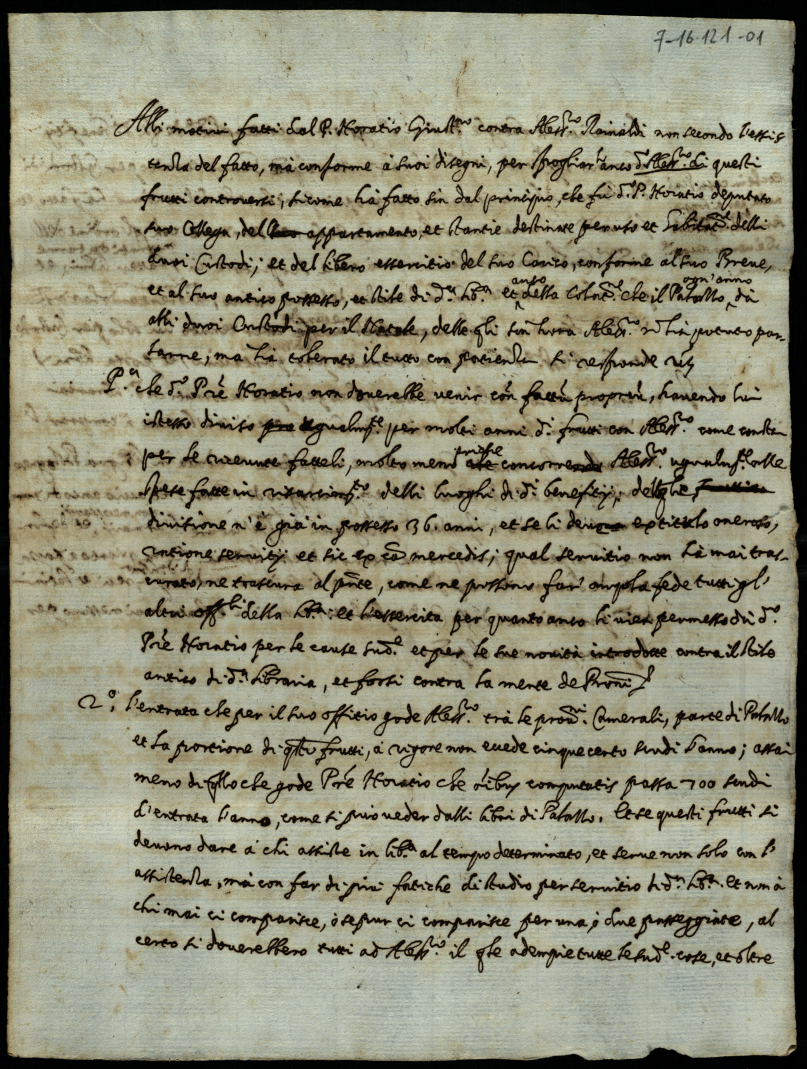 7-16-121-01
Alli motivi fatti dal P. Horatio Giust.no contra Aless.ro Rainaldi non secondo l'essis
tenza del fatto, mà conforme à suoi disegni, per spogliar anco d.o Aless.ro di questi
frutti controversi, sicome hà fatto sin dal principio, che fù d.o P. Horatio deputato
suo Collega, del appartamento, et stantie destinate per uso et habitat.e delli
duoi Custodi; et del libero essercitio del suo Carico, conforme al suo Breve,
et al suo antico possesso, et stile di d.a lib.a et anco della che il Palazzo ogn'anno dà
alli duoi Custodi per il Natale, delle q̃li sin hora Aless.ro nõ hà potuto par-
tarne, ma hà tolerato il tutto con patienza si risponde
P.a che d.o Prẽ Horatio non doverebbe venir cõn fattu proprïu, havendo lui
istesso diviso ugualm.te per molti anni di frutti con Aless.ro come consta
per le riceuute fatteli, molto meno Aless.ro ugualm.te alle
spese fatte in delli luoghi di d.i benefitij, delle q̃le
divitione n'è già in possesso 36. anni, et se li devono ex titulo oneroso,
ratione servitij et sic ex cã mercedis; qual servitio non hà mai tras-
curato, ne trascura al pñte, come ne possono far' ampla fede tutti gl'
altri off.li della lib.a: et l'essercita per quanto anco li vien permesso di d.o
Prẽ Horatio per le cause sud.e et per le sue novità introdotte contra il stile
antico di d.a libraria, et forsi contra la mente de Proñi
2.o L'entrata che per il suo offitio gode Aless.ro trà le Camerali, parte di Palazzo
et la portione di q̃sti frutti, à rigore non eccede cinquecento scudi l'anno; assai
meno di q̃llo che gode Prẽ Horatio che õibus computatis passa 700 scudi
d'entrata l'anno, come si può veder dalli libri di Palazzo. Et se questi frutti si
devono dare à chi assiste in lib.a al tempo determinato, et serve non solo con l'
assistenza, mà con far di più fatiche di studio per servitio di d.a lib.a. et non à
chi mai ci comparisce, ò se pur ci comparisce per una, ò due passeggiate, al
certo si doverebbero tutti ad Aless.ro il q̃le adempie tutte le sud.e cose, et oltre